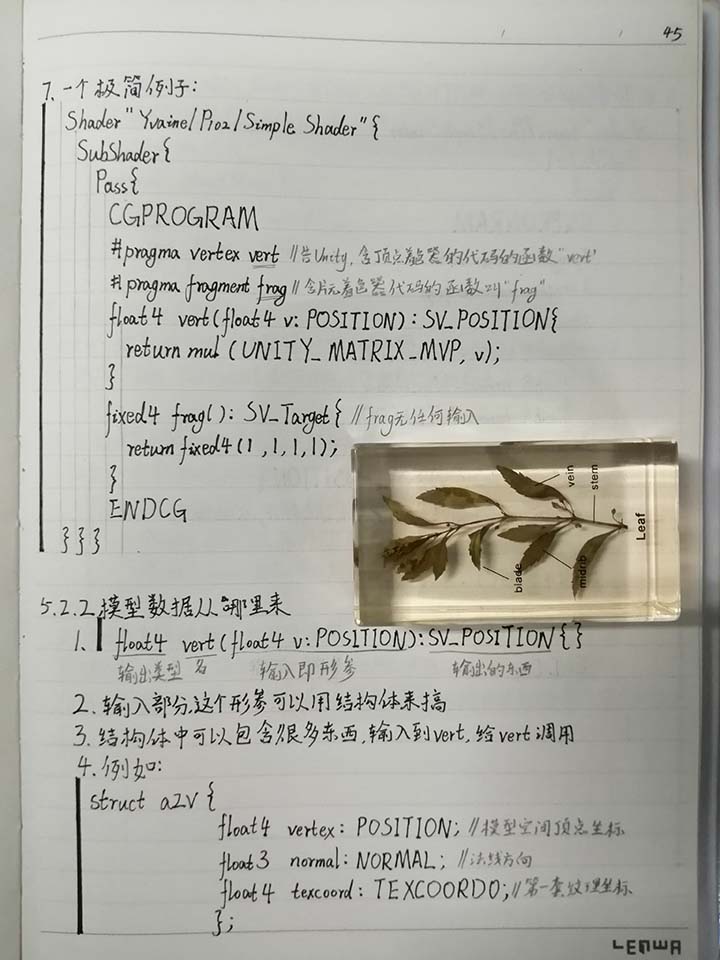 45
7. 一个极简例子:
Shader "Yvaine/P102/Simple Shader" {
SubShader{
Pass{
CGPROGRAM
#pragma vertex vert //告Unity,含顶点着色器的代码的函数"vert"
#pragma fragment frag //含片元着色器代码的函数叫"frag"
float4 vert(float4 v: POSITION): SV_POSITION{
return mul (UNITY_MATRIX_MVP, v);
}
fixed4 frag(): SV_Target{ //frag无任何输入
return fixed4(1,1,1,1);
}
ENDCG
}}}
vein
stem
Leaf
blade
midrib
5.2.2 模型数据从哪里来
1. float4 vert(float4 v: POSITION): SV_POSITION{}
输出类型 名 输入即形参 输出的东西
2. 输入部分,这个形参可以用结构体来搞
3. 结构体中可以包含很多东西,输入到vert,给vert调用
4. 例如:
struct a2v {
float4 vertex: POSITION; //模型空间顶点坐标
float3 normal: NORMAL; //法线方向
float4 texcoord: TEXCOORD0; //第一套纹理坐标
};
LENWA